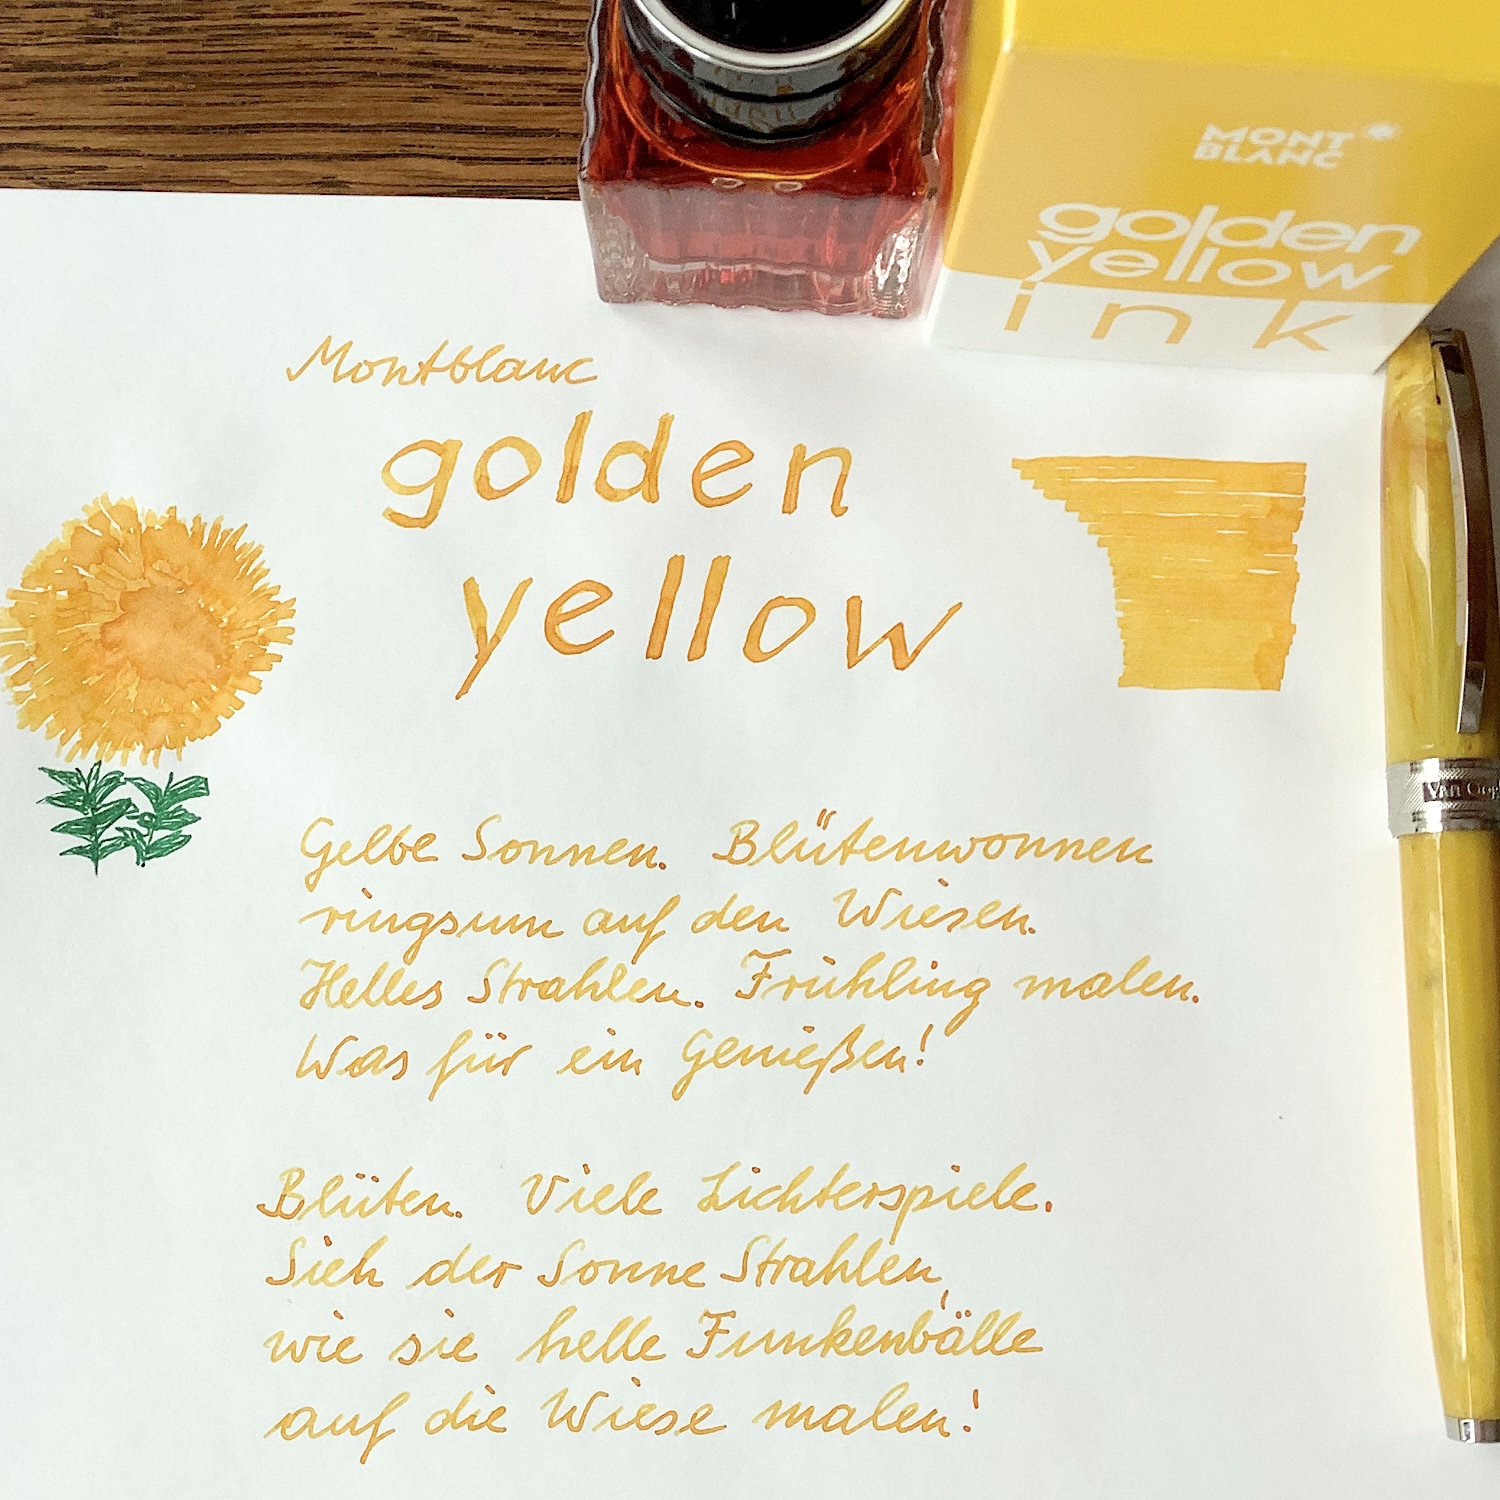 MONT
BLANC
golden
yellow
ink
Montblanc
golden
yellow
Gelbe Sonnen. Blütenwonnen
ringsum auf den Wiesen.
Helles Strahlen. Frühling malen.
Was für ein Genießen!
Blüten. Viele Lichterspiele.
Sieh der Sonne Strahlen,
wie sie helle Funkenbälle
auf die Wiese malen!